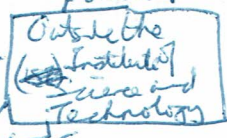 Outside the
Institute of
Science and
Technology